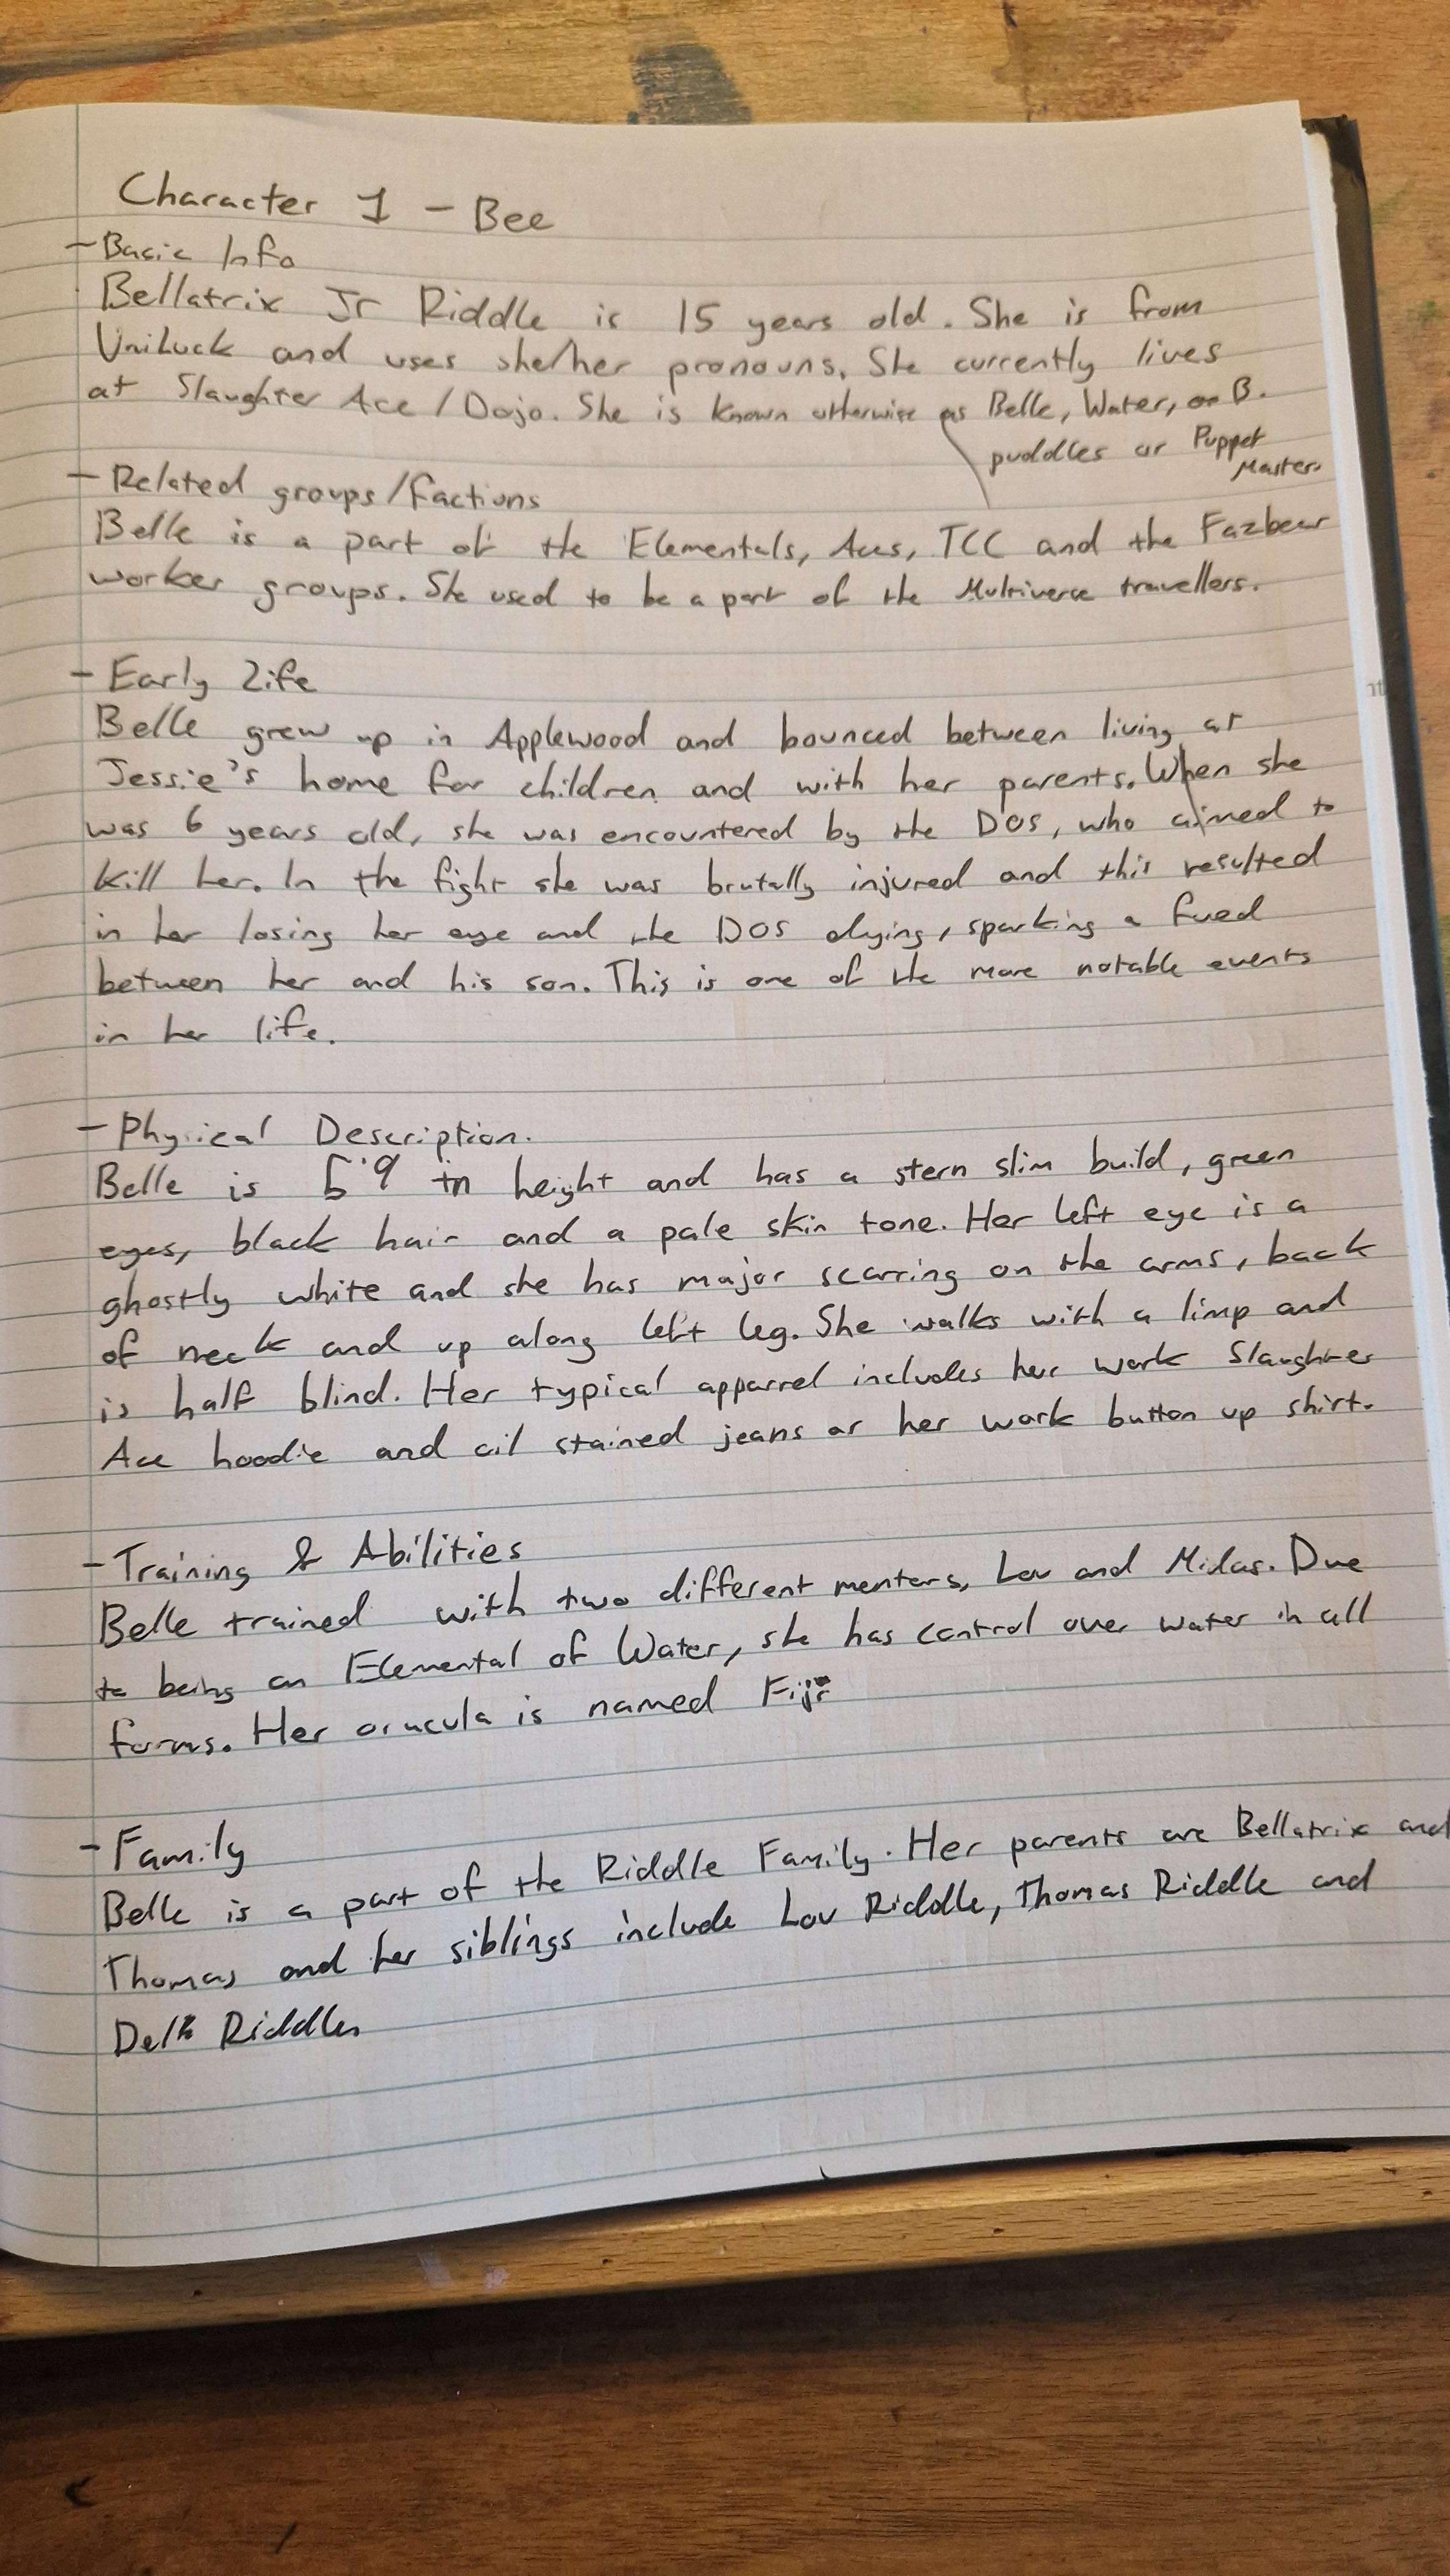 Character 1 - Bee
- Basic Info
Bellatrix Jr Riddle is 15 years old. She is from
Uniluck and uses she/her pronouns. She currently lives
at Slaughter Ace / Dojo. She is known otherwise as Belle, Water, or B.
puddles or Puppet
Master.
- Related groups/factions
Belle is a part of the Elementals, Aces, TCC and the Fazbear
worker groups. She used to be a part of the Multiverse travellers.
- Early Life
Belle grew up in Applewood and bounced between living at
Jessie's home for children and with her parents. When she
was 6 years old, she was encountered by the DOS, who aimed to
kill her. In the fight she was brutally injured and this resulted
in her losing her eye and the DOS dying, sparking a fued
between her and his son. This is one of the more notable events
in her life.
- Physical Description.
Belle is 5'9 in height and has a stern slim build, green
eyes, black hair and a pale skin tone. Her left eye is a
ghostly white and she has major scarring on the arms, back
of neck and up along left leg. She walks with a limp and
is half blind. Her typical apparrel includes her work Slaughter
Ace hoodie and oil stained jeans or her work button up shirt.
- Training & Abilities
Belle trained with two different mentors, Lou and Midas. Due
to being an Elemental of Water, she has control over water in all
forms. Her oracula is named Fiji
- Family
Belle is a part of the Riddle Family. Her parents are Bellatrix and
Thomas and her siblings include Lou Riddle, Thomas Riddle and
Riddle